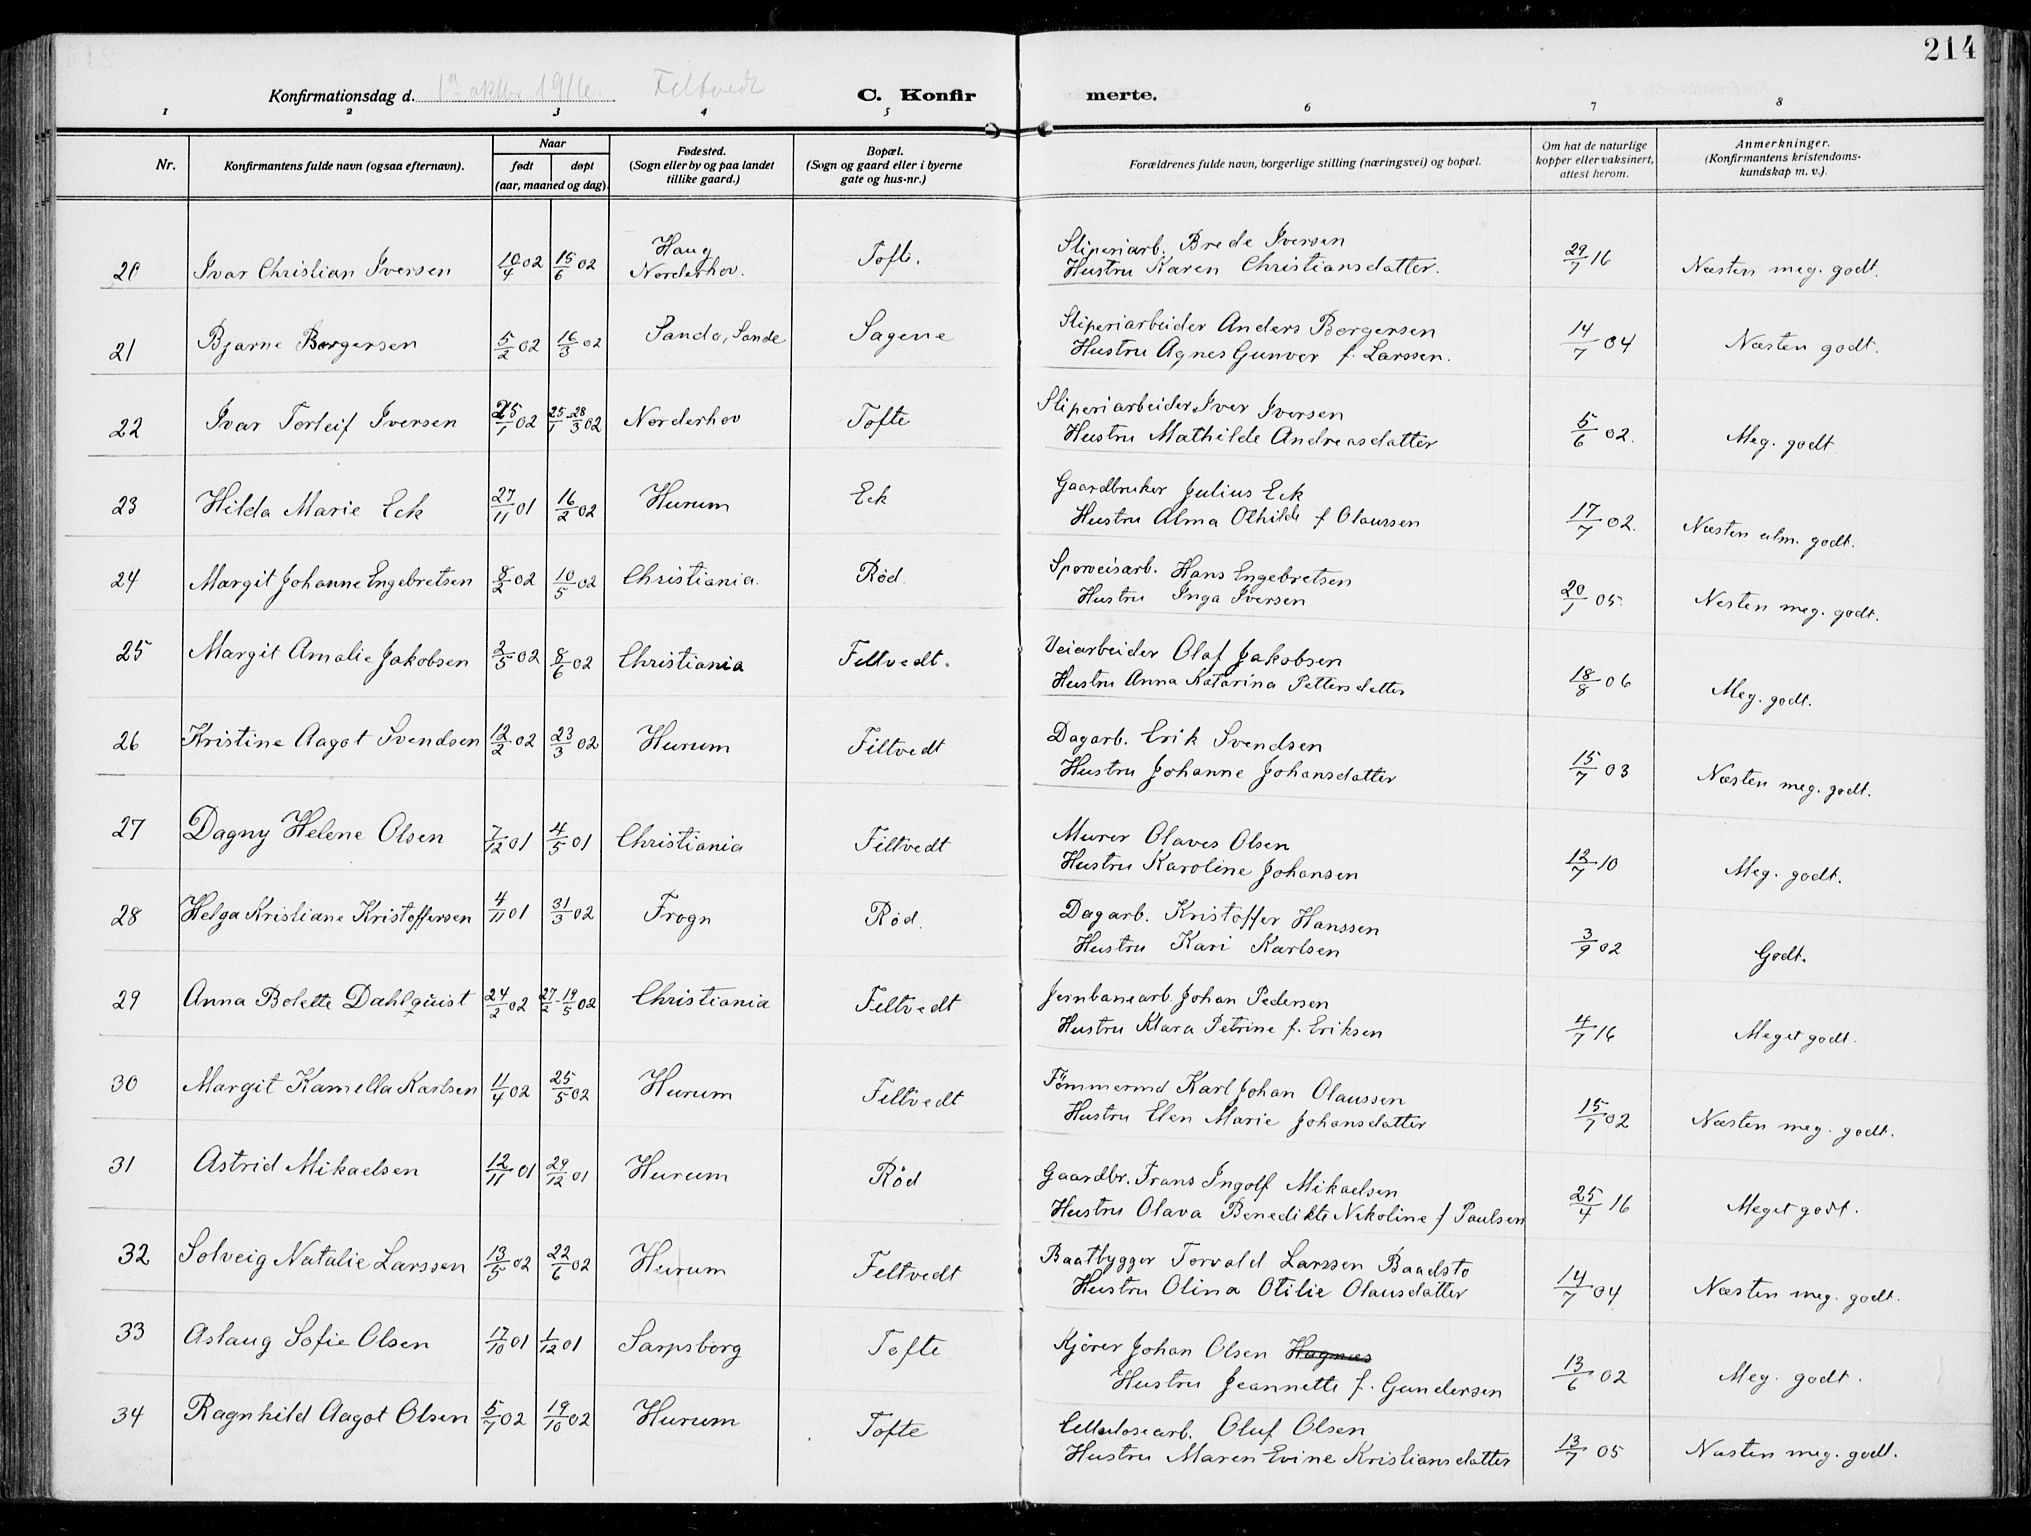 214
Konfirmationsdag d. 1ste oktbr. 1916. Filtvedt C. Konfirmerte.
1 2 3 4 5 6 7 8
Nr. Konfirmantens fulde navn (ogsaa efternavn). Naar født døpt (aar, maaned og dag). Fødested. (Sogn eller by og paa landet tillike gaard.) Bopæl. (Sogn og gaard eller i byerne gate og hus-nr.) Forældrenes fulde navn, borgerlige stilling (næringsvei) og bopæl. Om hat de naturlige kopper eller vaksinert, attest herom. Anmerkninger. (Konfirmantens kristendomskundskap m. v.).
20 Ivar Christian Iversen 10/4 02 15/6 02 Haug Norderhov. Tofte. Sliperiarb. Brede Iversen
Hustru Karen Christiansdatter. 29/7 16 Næsten meg. godt.
21 Bjarne Borgersen 5/2 02 16/3 02 Sando, Sande Sagene Sliperiarbeider Anders Borgersen
Hustru Agnes Gunvor f. Larssen. 14/7 04 Næsten godt.
22 Ivar Torleif Iversen 25/1 02 25/1-28/3 02 Norderhov Tofte Sliperiarbeider Iver Iversen
Hustru Mathilde Andreasdatter 5/6 02. Meg. godt
23 Hilda Marie Eek 27/11 01 16/2 02 Hurum Eek Gaardbruker Julius Eek
Hustru Alma Othilde f Olaussen 17/7 02. Næsten alm. godt.
24 Margit Johanne Engebretsen 8/2 02 10/5 02 Christiania. Rød. Sporveisarb. Hans Engebretsen
Hustru Inga Iversen 20/1 05. Nesten meg. godt.
25 Margit Amalie Jakobsen 2/5 02 8/6 02 Christiania Feltvedt. Veiarbeider Olaf Jakobsen
Hustru Anna Katarina Pettersdatter 18/8 06 Meg. godt.
26 Kristine Aagot Svendsen 12/2 02 23/3 02 Hurum Filtvedt Dagarb. Erik Svendsen
Hustru Johanne Johansdatter 15/7 03 Næsten meg. godt.
27 Dagny Helene Olsen 7/12 01 4/5 01 Christiania Filtvedt Murer Olaves Olsen
Hustru Karoline Johansen 12/7 10 Meg. godt.
28 Helga Kristiane Kristoffersen 4/11 01 31/3 02 Frogn Rød. Dagarb. Kristoffer Hanssen
Hustru Kari Karlsen 3/9 02 Godt.
29 Anna Bolette Dahlquist 24/2 02 27/2-19/5 02 Christiania Feltvedt Jernbanearb. Johan Pedersen
Hustru Klara Petrine f. Eriksen 4/7 16 Meget godt.
30 Margit Kamella Karlsen 11/4 02 25/5 02 Hurum Filtvedt Tømmermd Karl Johan Olaussen
Hustru Elen Marie Johansdatter 15/7 02 Næsten meg. godt.
31 Astrid Mikaelsen 12/11 01 29/12 01 Hurum Rød Gaardbr. Frans Ingolf Mikaelsen
Hustru Olava Benedikte Nikoline f Paulsen 25/4 16 Meget godt.
32 Solveig Natalie Larssen 13/5 02 22/6 02 Hurum Feltvedt Baatbygger Torvald Larssen Baadsto
Hustru Olina Otilie Olausdatter 14/7 04 Næsten meg. godt.
33 Aslaug Sofie Olsen 17/10 01 1/12 01 Sarpsborg Tofte Kjører Johan Olsen Hagnæs
Hustru Jeannette f. Gundersen 13/6 02 Meg. godt.
34 Ragnhild Aagot Olsen 5/7 02 19/10 02 Hurum Tofte Cellulosearb. Oluf Olsen
Hustru Maren Evine Kristiansdatter 13/7 05 Næsten meg. godt.